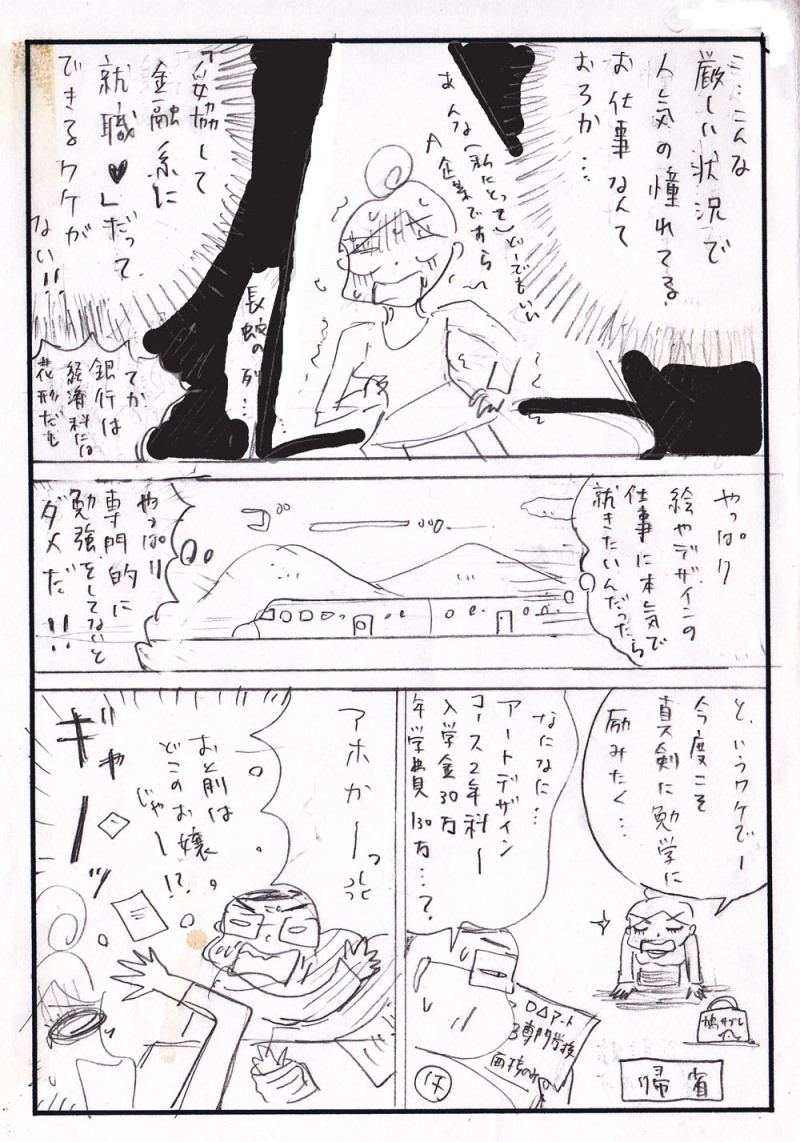 …こんな
厳しい状況で
人気の憧れてる
お仕事なんて
おろか…
あんな(私にとって)どーでもいい
A企業ですら〜
長蛇の列…
「妥協して
金融系に
就職♥」だって
できるワケが
ない!!
てか
銀行は
経済科には
花形だも
やっぱり
絵やデザインの
仕事に本気で
就きたいんだったら
ゴ゛ー゛゛
やっぱり
専門的に
勉強をしてないと
ダメだ!!
と、いうワケでー
今度こそ
真剣に勉学に
励みたく…
鳩サブレ
帰省
なになに…
アートデザイン
コース2年科ー
入学金30万
年学費130万…?
○△アート
専門学校
アホかーっ
お前は
どこのお嬢
じゃー!?
ギャーッ